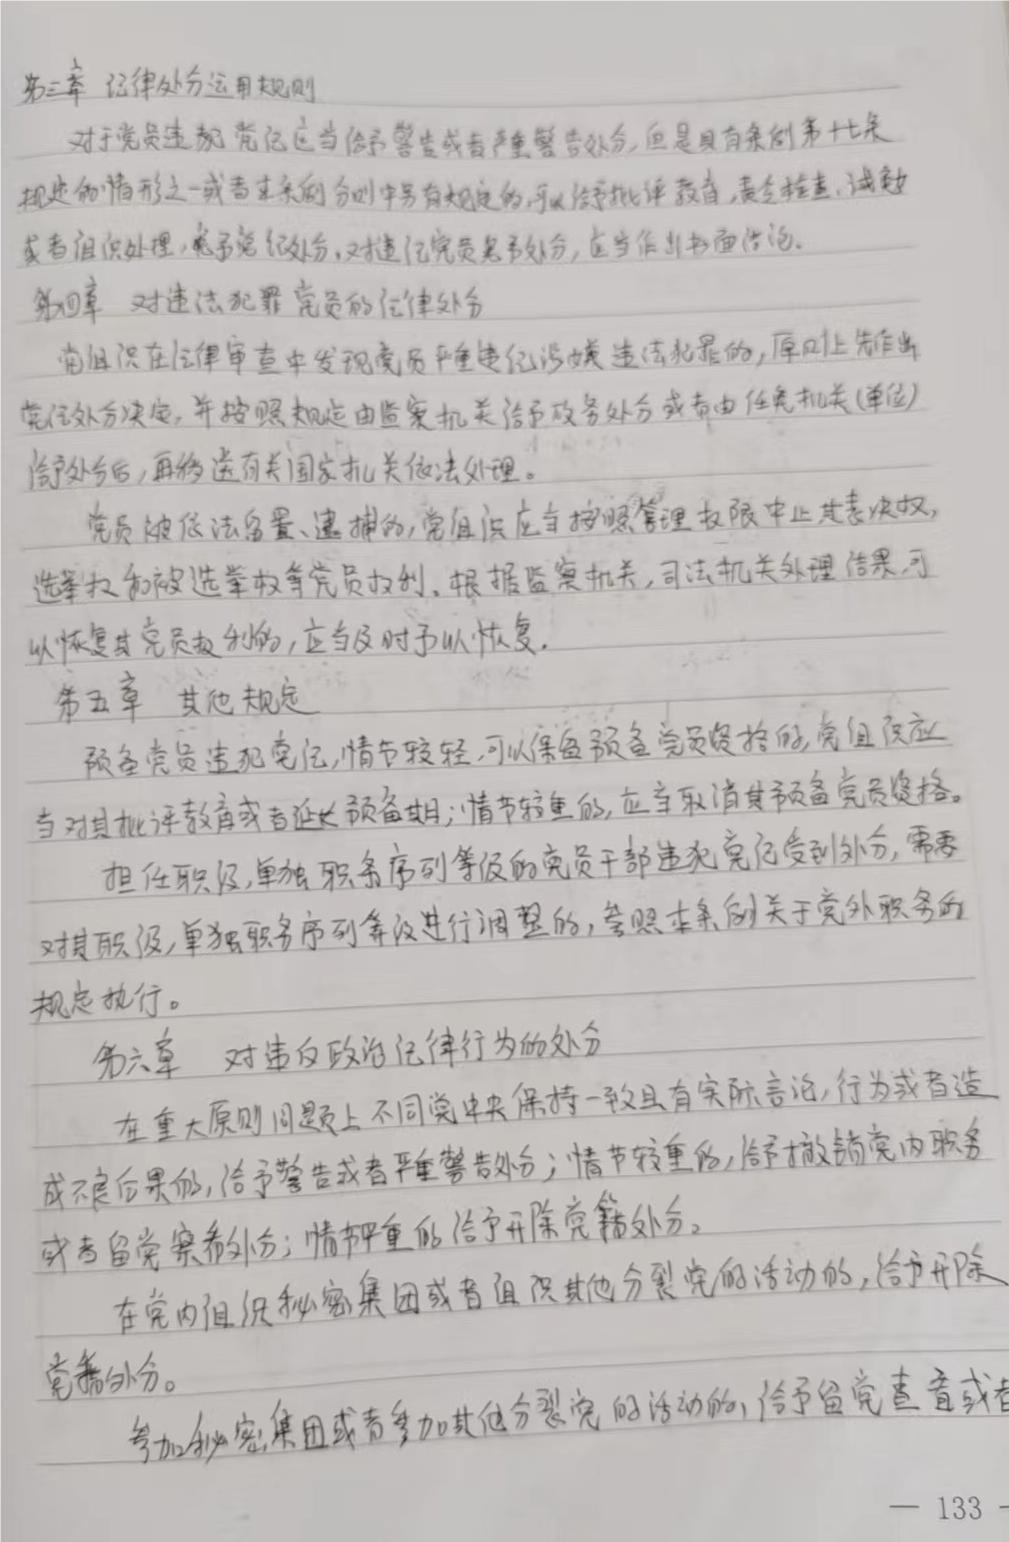 第三章 纪律处分运用规则
对于党员违犯党纪应当给予警告或者严重警告处分,但是具有条例第十七条
规定的情形之一或者本条例分则中另有规定的,可以给予批评教育,责令检查,诫勉
或者组织处理,免予党纪处分。对违纪党员免予处分,应当作出书面结论。
第四章 对违法犯罪党员的纪律处分
党组织在纪律审查中发现党员严重违纪涉嫌违法犯罪的,原则上先作出
党纪处分决定,并按照规定由监察机关给予政务处分或者由任免机关(单位)
给予处分后,再移送有关国家机关依法处理。
党员被依法留置、逮捕的,党组织应当按照管理权限中止其表决权,
选举权和被选举权等党员权利。根据监察机关,司法机关处理结果,可
以恢复其党员权利的,应当及时予以恢复。
第五章 其他规定
预备党员违犯党纪,情节较轻,可以保留预备党员资格的,党组织应
当对其批评教育或者延长预备期;情节较重的,应当取消其预备党员资格。
担任职级,单独职务序列等级的党员干部违犯党纪受到处分,需要
对其职级,单独职务序列等级进行调整的,参照本条例关于党外职务的
规定执行。
第六章 对违反政治纪律行为的处分
在重大原则问题上不同党中央保持一致且有实际言论,行为或者造
成不良后果的,给予警告或者严重警告处分;情节较重的,给予撤销党内职务
或者留党察看处分;情节严重的给予开除党籍处分。
在党内组织秘密集团或者组织其他分裂党的活动的,给予开除
党籍处分。
参加秘密集团或者参加其他分裂党的活动的,给予留党查看或者
— 133 —